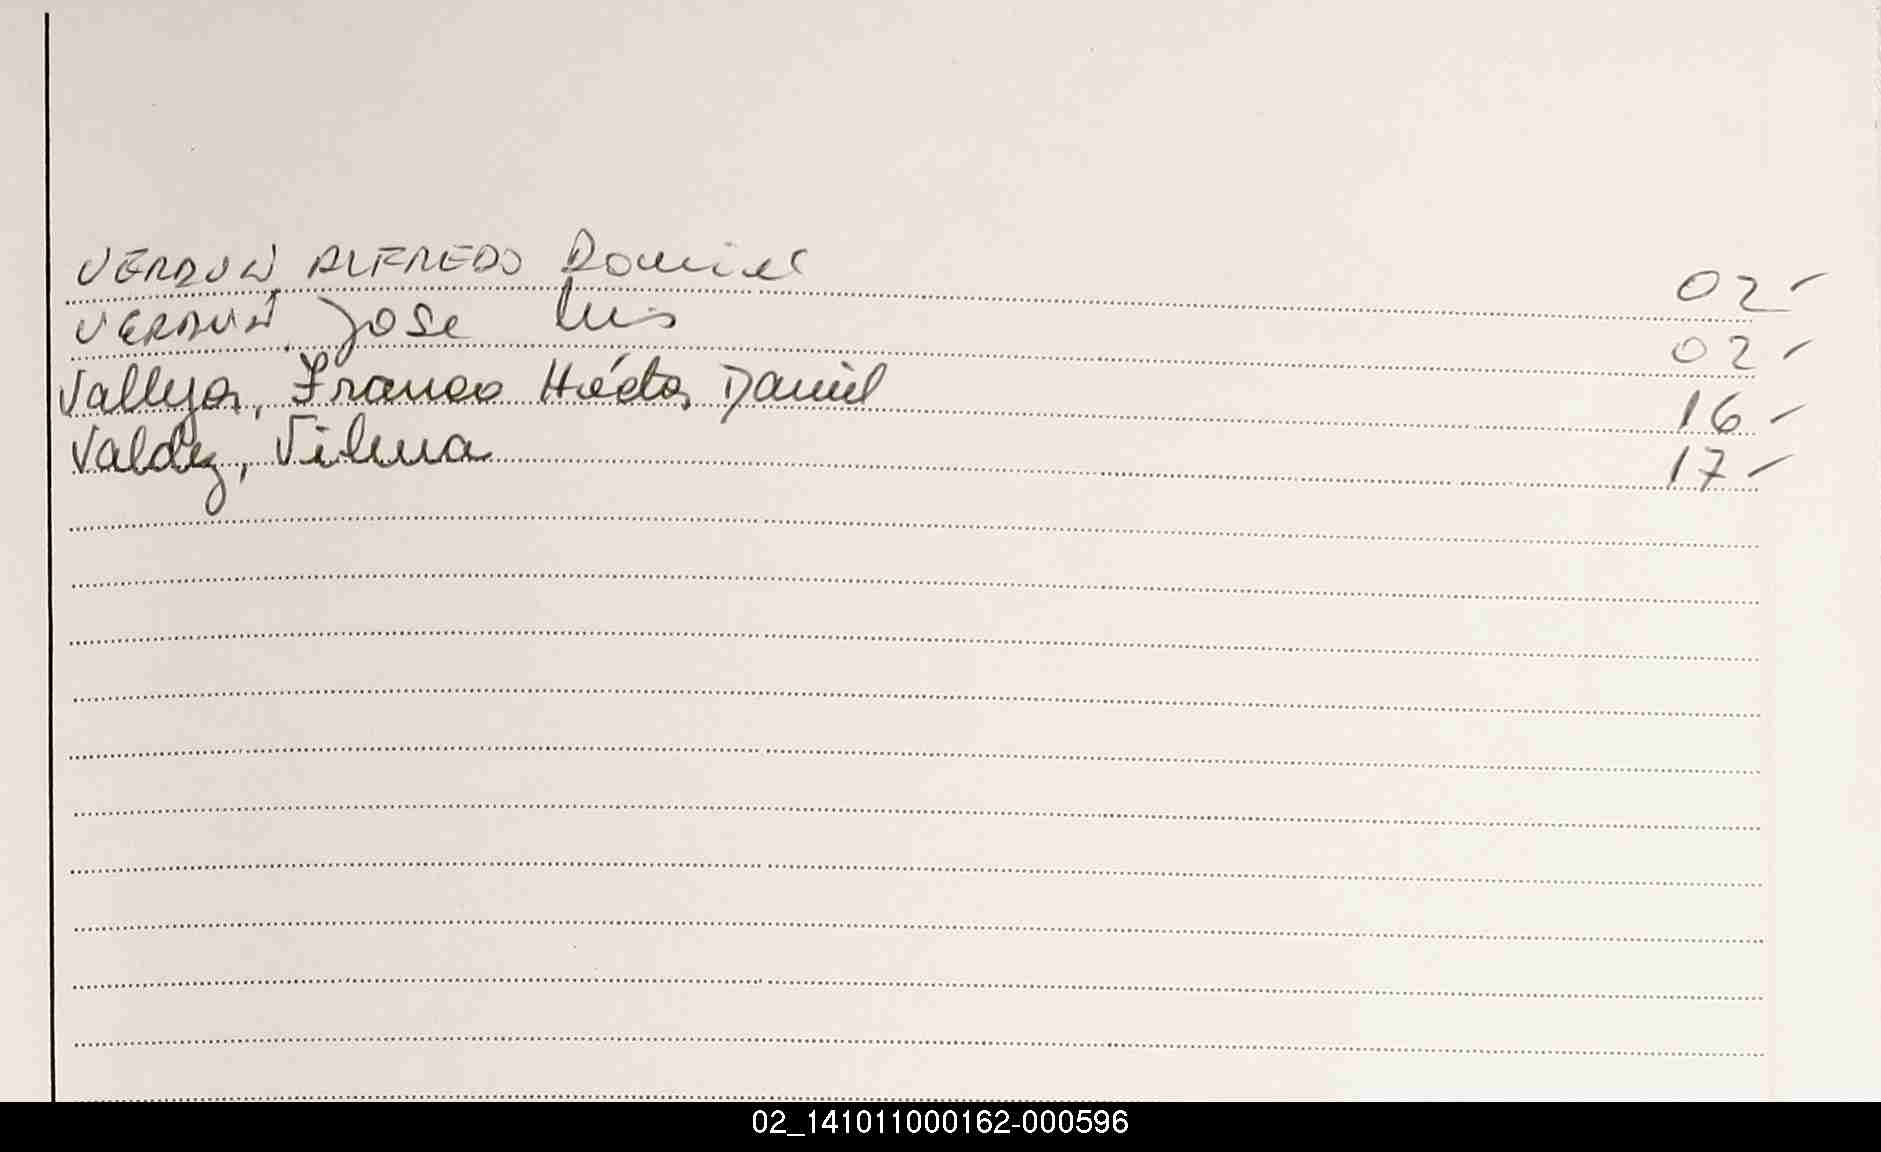 VERDUN ALFREDO Daniel 02-
VERDUN, Jose Luis 02-
Vallejos, Franco Héctor Daniel 16-
Valdez, Vilma 17-
02_141011000162-000596